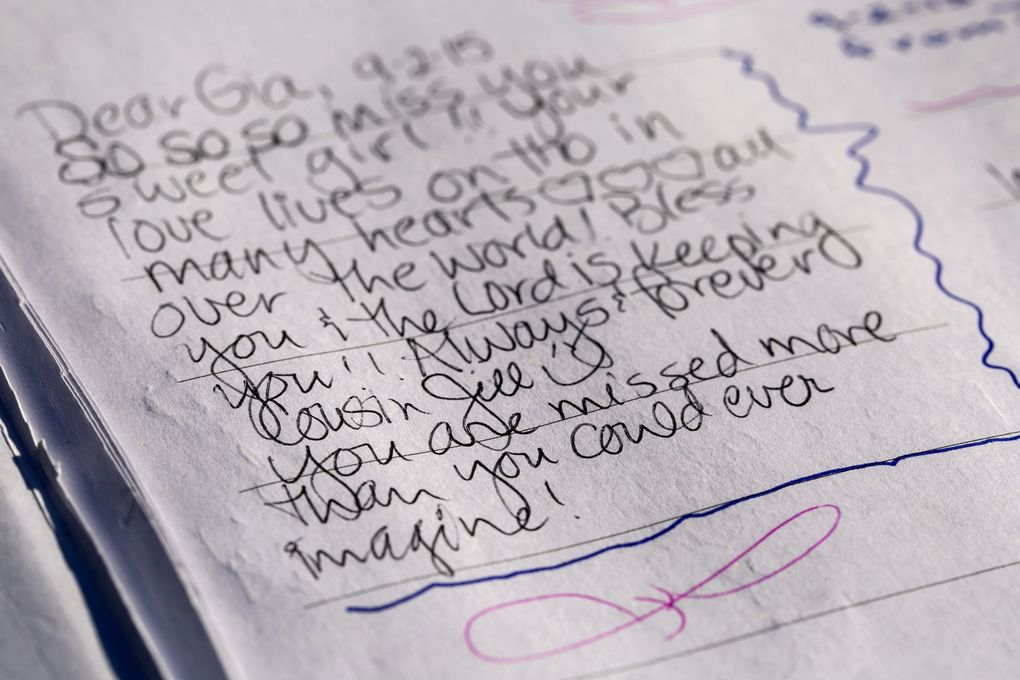 Dear Gia, 9-2-15
So so so miss you
sweet girl!! Your
love lives on tho in
many hearts ♡♡♡ all
over the world! Bless
you & the Lord is keeping
you!! Always & forever,
Cousin Jill
You are missed more
than you could ever
imagine!